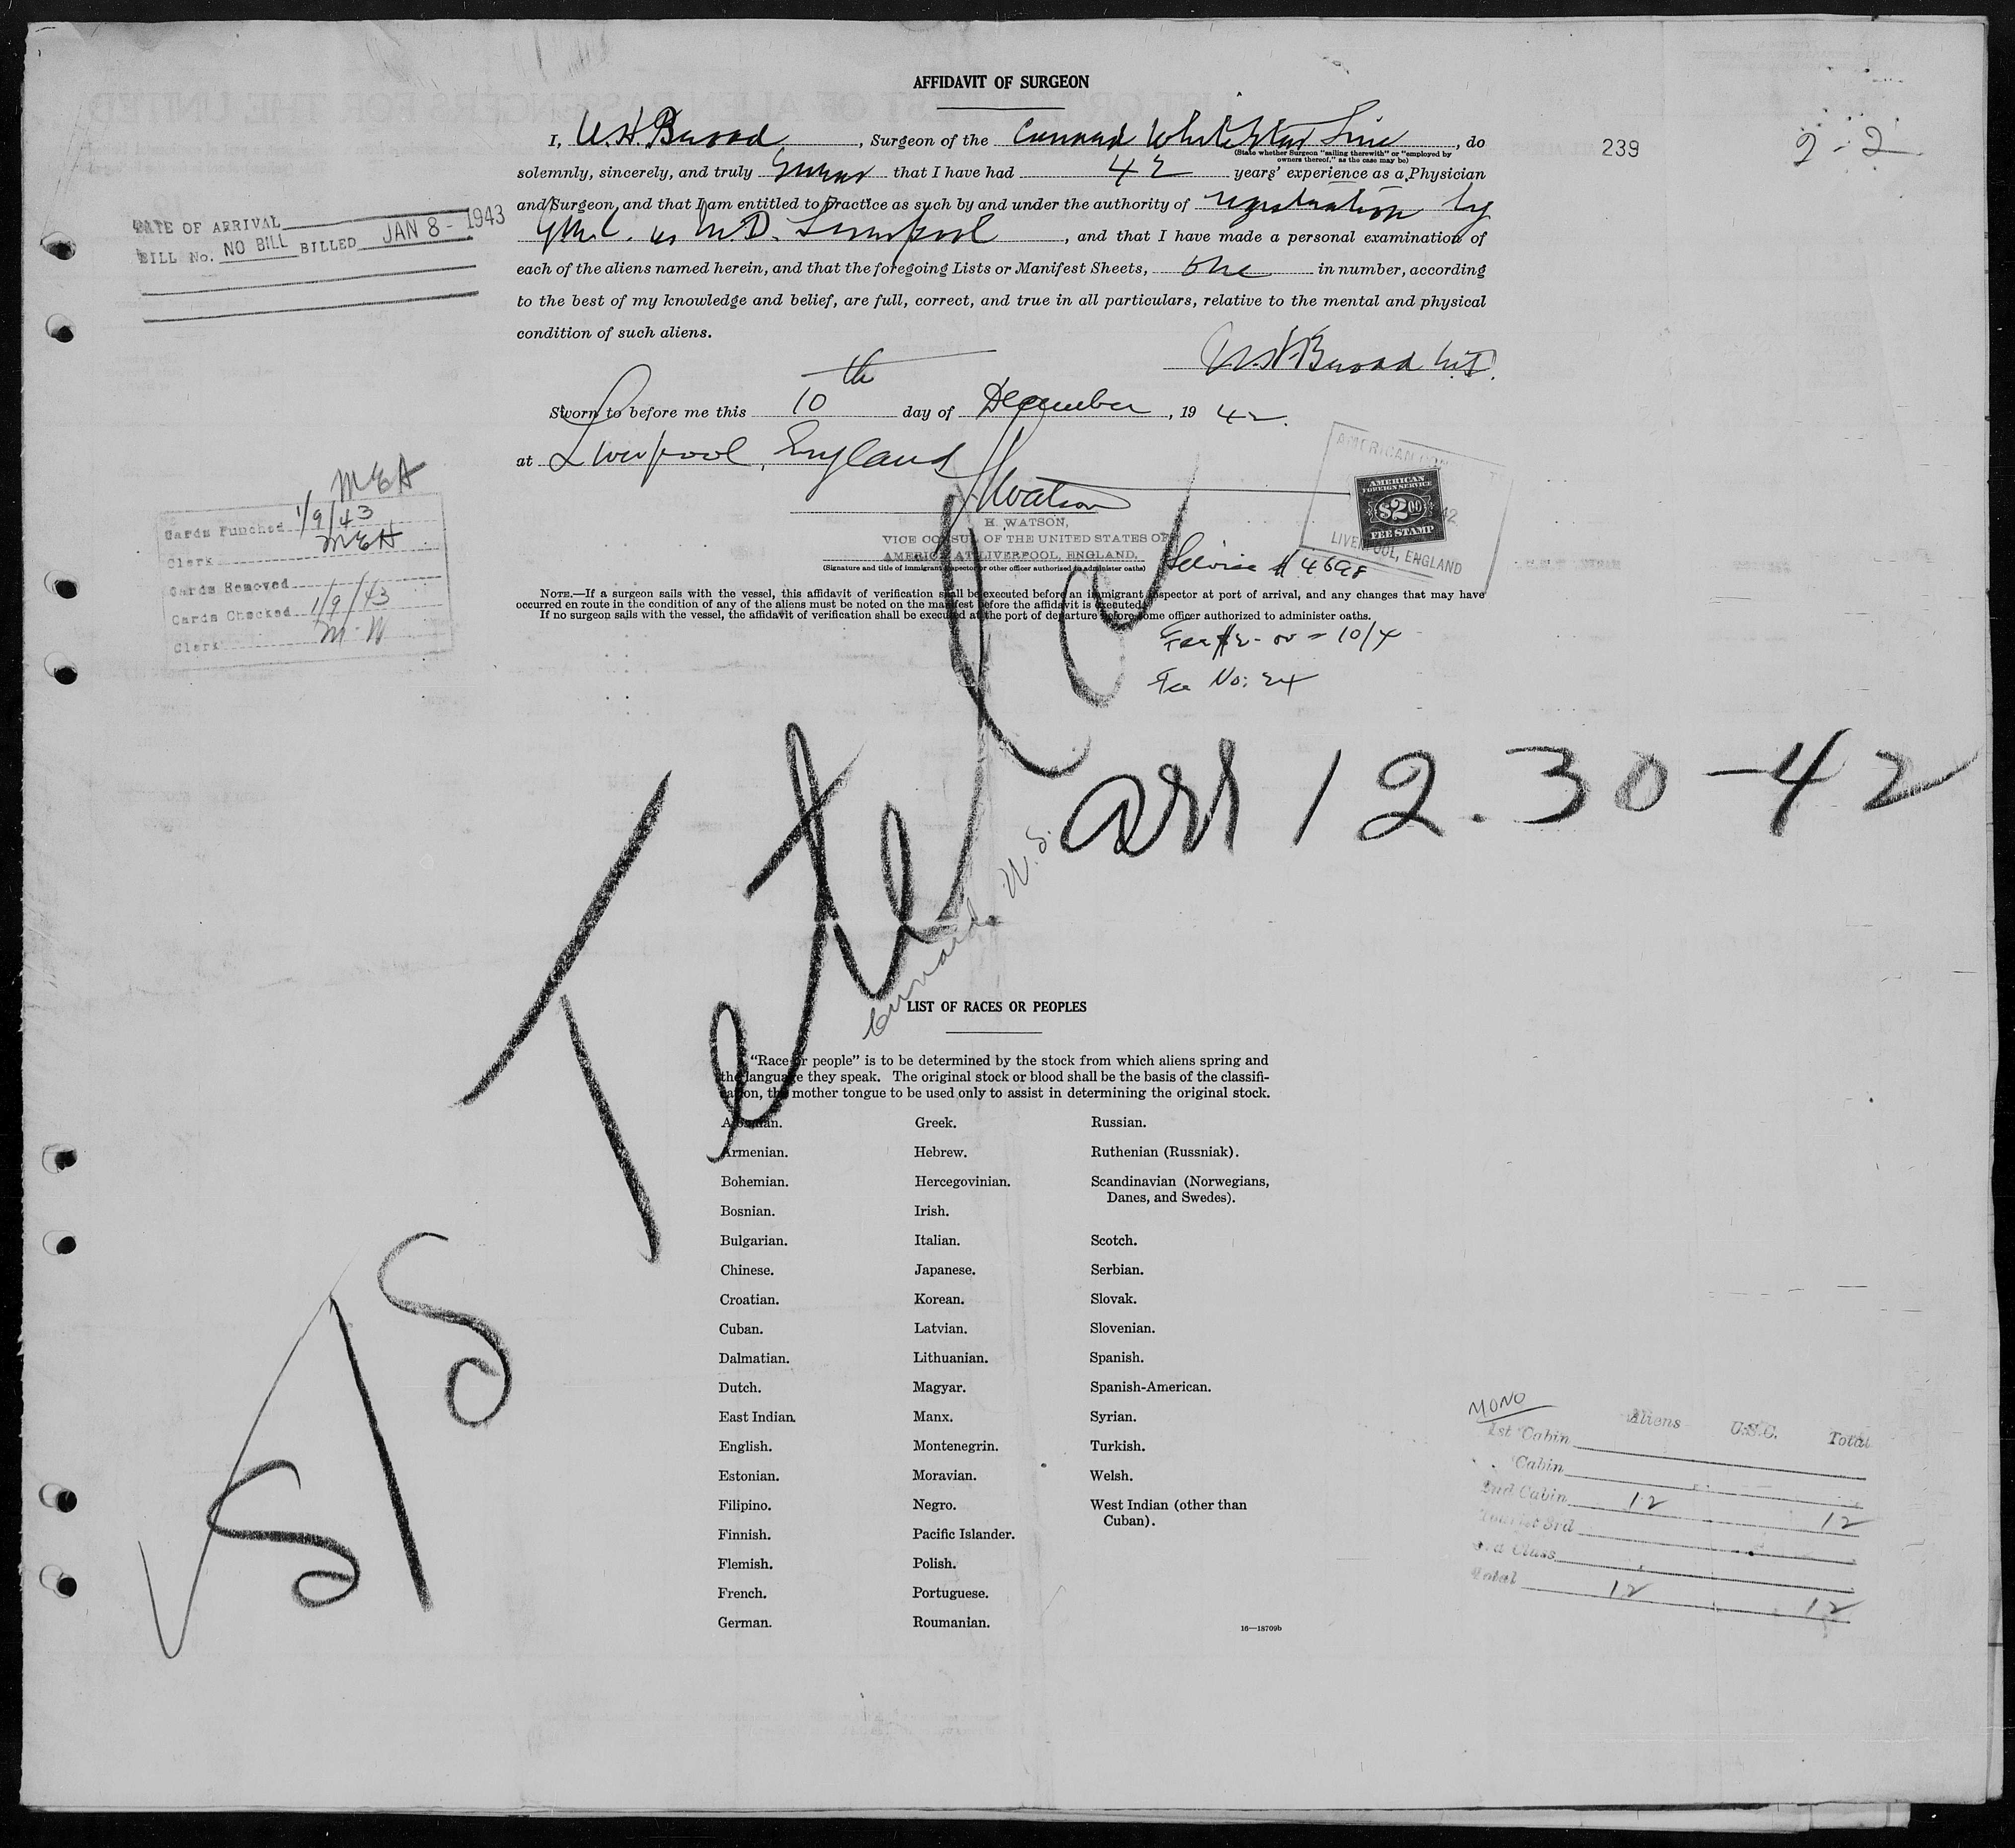 AFFIDAVIT OF SURGEON
I, W.H. Broad, Surgeon of the Cunard White Star Line, do
(State whether Surgeon "sailing therewith" or "employed by
owners thereof," as the case may be)
239
2-2
solemnly, sincerely, and truly swear that I have had 42 years' experience as a Physician
and Surgeon, and that I am entitled to practice as such by and under the authority of registration by
G.M.C. as M.D. Liverpool, and that I have made a personal examination of
each of the aliens named herein, and that the foregoing Lists or Manifest Sheets, one in number, according
to the best of my knowledge and belief, are full, correct, and true in all particulars, relative to the mental and physical
condition of such aliens.
DATE OF ARRIVAL
BILL No. NO BILL BILLED JAN 8 - 1943
W.H. Broad M.D.
Sworn to before me this 10th day of December, 19 42.
at Liverpool, England
H Watson
H. WATSON,
VICE CONSUL OF THE UNITED STATES OF
AMERICA AT LIVERPOOL, ENGLAND.
(Signature and title of immigrant inspector or other officer authorized to administer oaths)
AMERICAN
AMERICAN
FOREIGN SERVICE
$2.00
FEE STAMP
LIVERPOOL, ENGLAND
Service # 4698
MEA
Cards Punched 1/9/43
Clerk MEA
Cards Removed
Cards Checked 1/9/43
Clerk M.W
NOTE.—If a surgeon sails with the vessel, this affidavit of verification shall be executed before an immigrant inspector at port of arrival, and any changes that may have
occurred en route in the condition of any of the aliens must be noted on the manifest before the affidavit is executed.
If no surgeon sails with the vessel, the affidavit of verification shall be executed at the port of departure before some officer authorized to administer oaths.
Fee $2.00 = 10/4
Fee No: 24
S/S Tetela
arr 12.30-42
Cunard W.S.
LIST OF RACES OR PEOPLES
"Race or people" is to be determined by the stock from which aliens spring and
the language they speak. The original stock or blood shall be the basis of the classifi-
cation, the mother tongue to be used only to assist in determining the original stock.
Albanian.
Armenian.
Bohemian.
Bosnian.
Bulgarian.
Chinese.
Croatian.
Cuban.
Dalmatian.
Dutch.
East Indian.
English.
Estonian.
Filipino.
Finnish.
Flemish.
French.
German.
Greek.
Hebrew.
Hercegovinian.
Irish.
Italian.
Japanese.
Korean.
Latvian.
Lithuanian.
Magyar.
Manx.
Montenegrin.
Moravian.
Negro.
Pacific Islander.
Polish.
Portuguese.
Roumanian.
Russian.
Ruthenian (Russniak).
Scandinavian (Norwegians,
Danes, and Swedes).
Scotch.
Serbian.
Slovak.
Slovenian.
Spanish.
Spanish-American.
Syrian.
Turkish.
Welsh.
West Indian (other than
Cuban).
16—18709b
MONO
Aliens U.S.C. Total
1st Cabin
Cabin
2nd Cabin 12 12
Tourist 3rd
3rd Class
Total 12 12